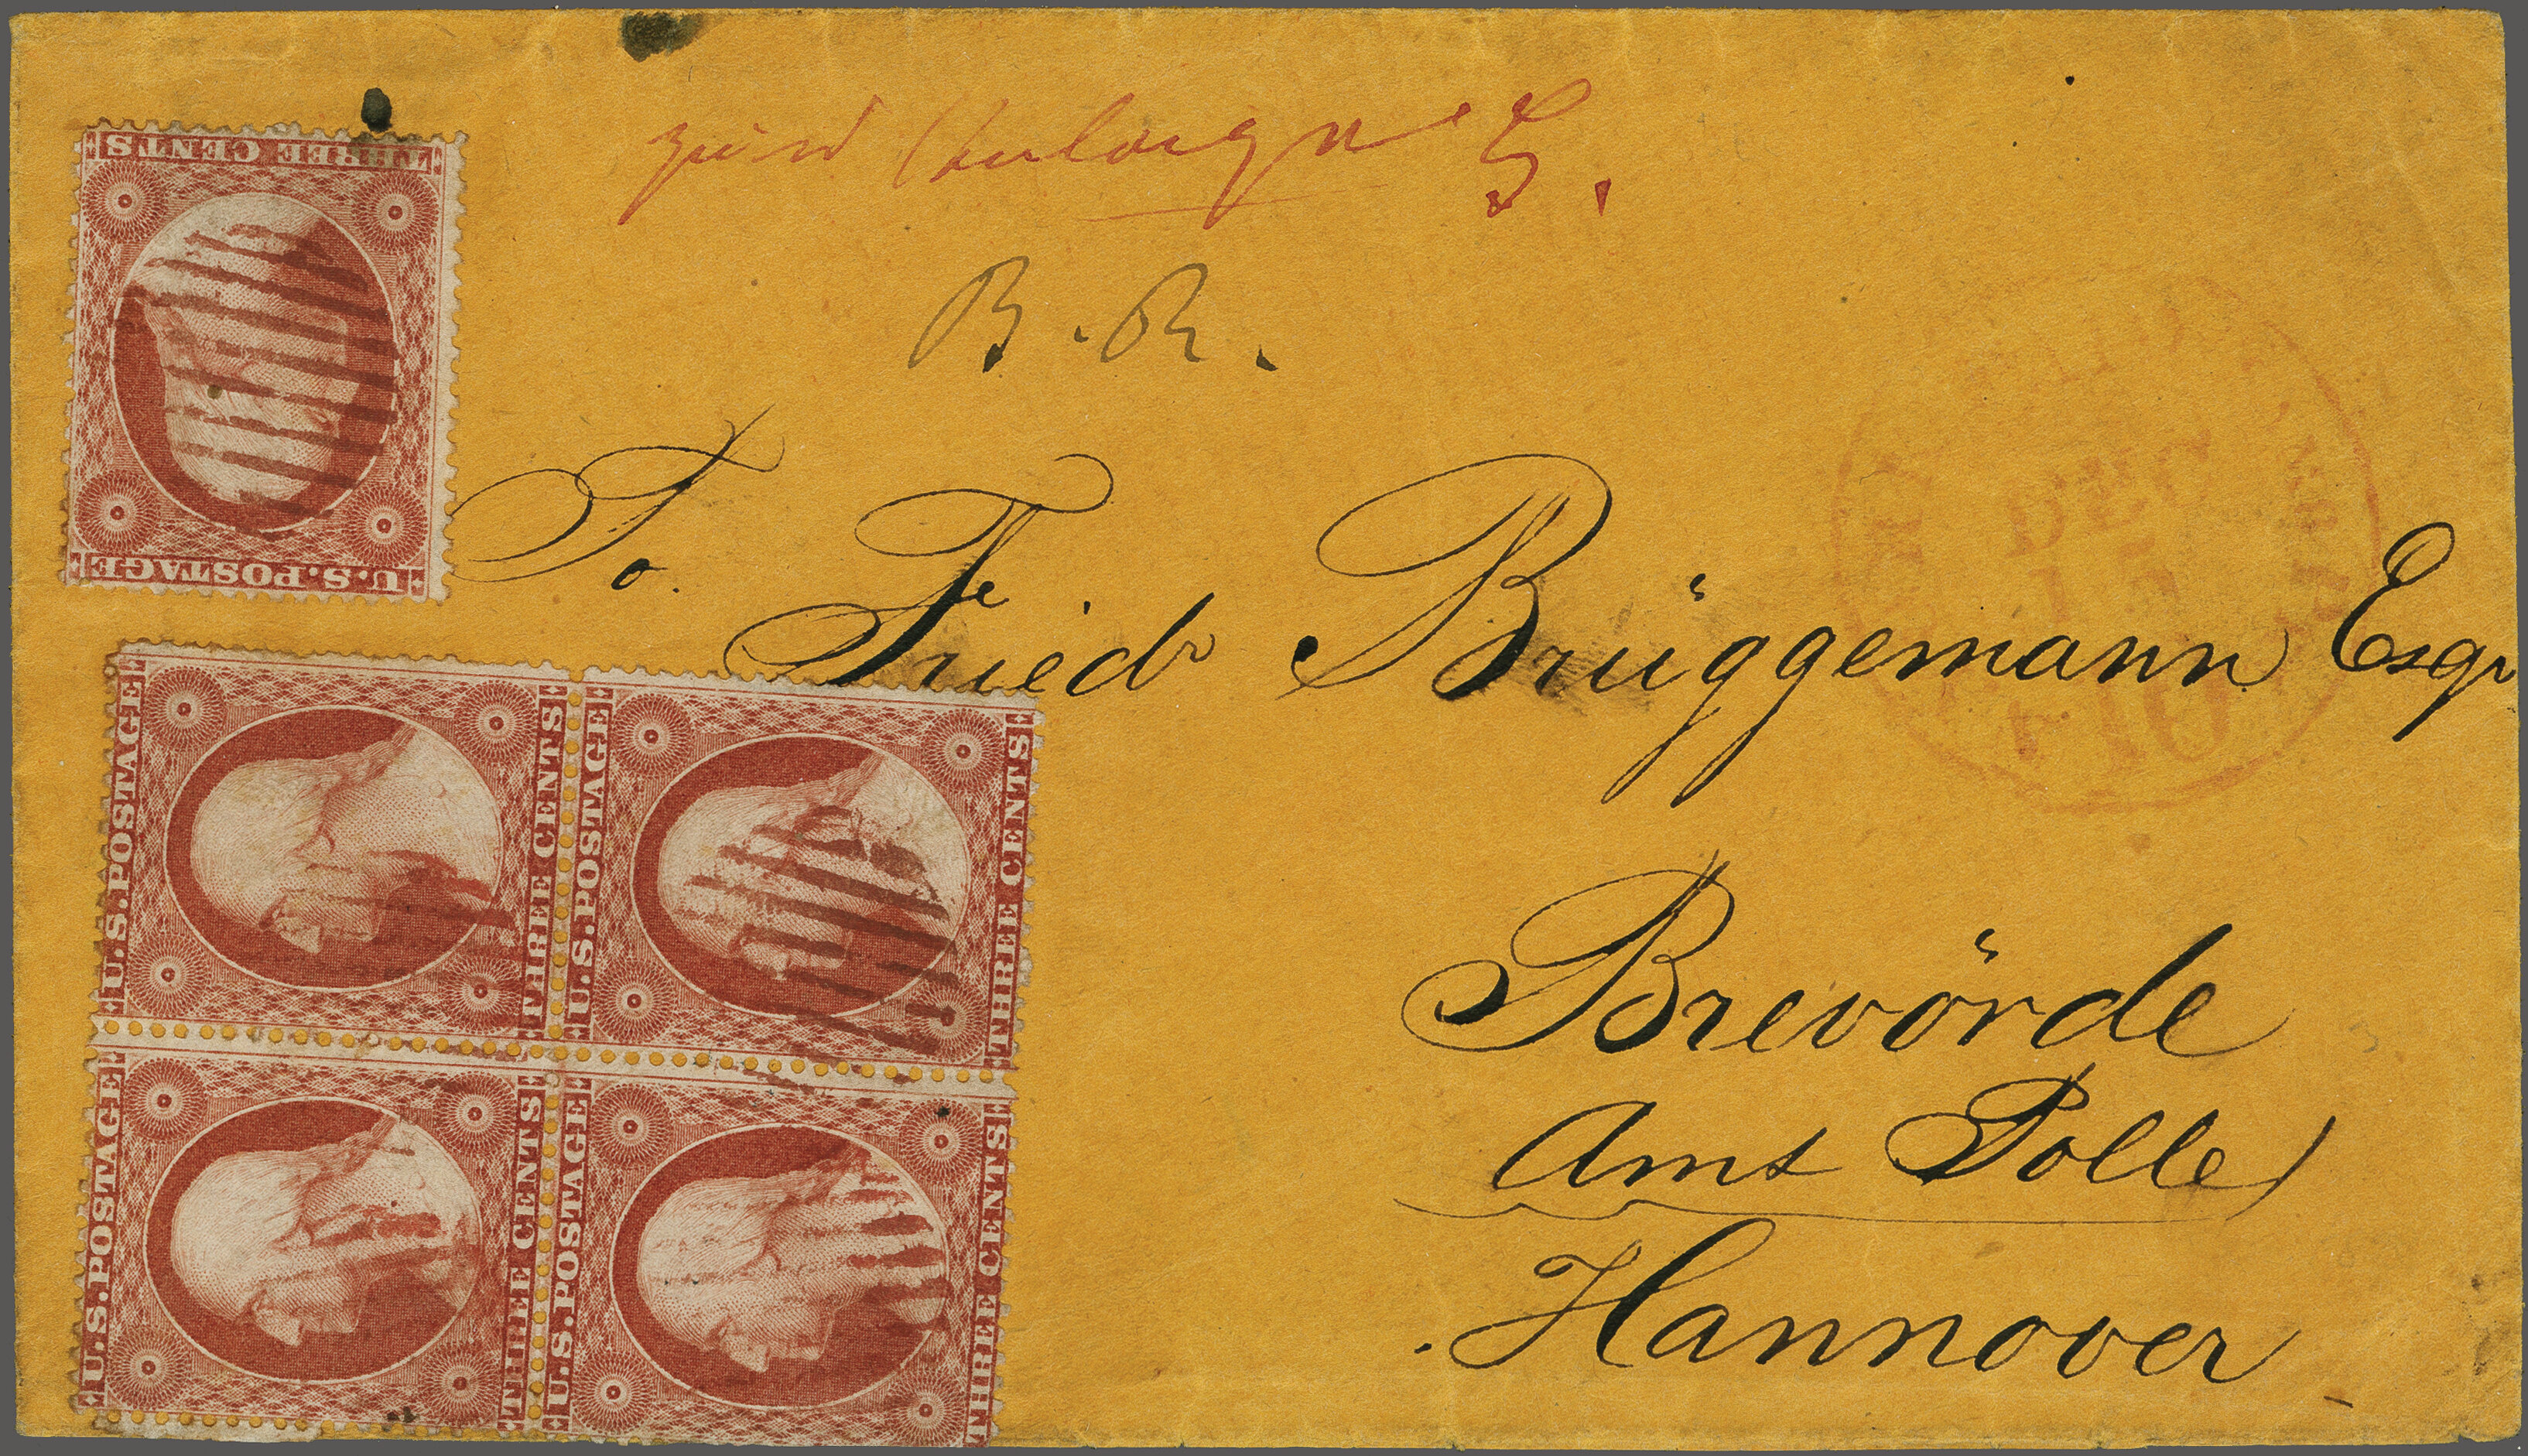 B. R.
To.
Friedr Brüggemann Esqr
Brevörde
Amt Polle
Hannover
DEC
15
10
THREE CENTS
U.S.POSTAGE
U.S.POSTAGE
THREE CENTS
U.S.POSTAGE
THREE CENTS
U.S.POSTAGE
THREE CENTS
U.S.POSTAGE
THREE CENTS